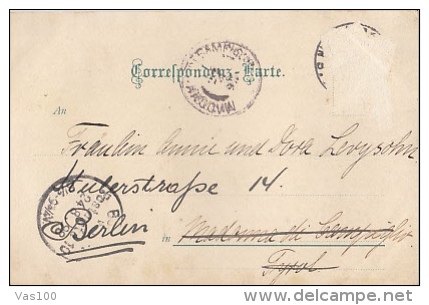 Correspondenz-Karte.
An
Fräulein Annie und Dora Levysohn
14.
Berlin
Madonna di Campiglio
Tyrol
Vas100
delcampe.net